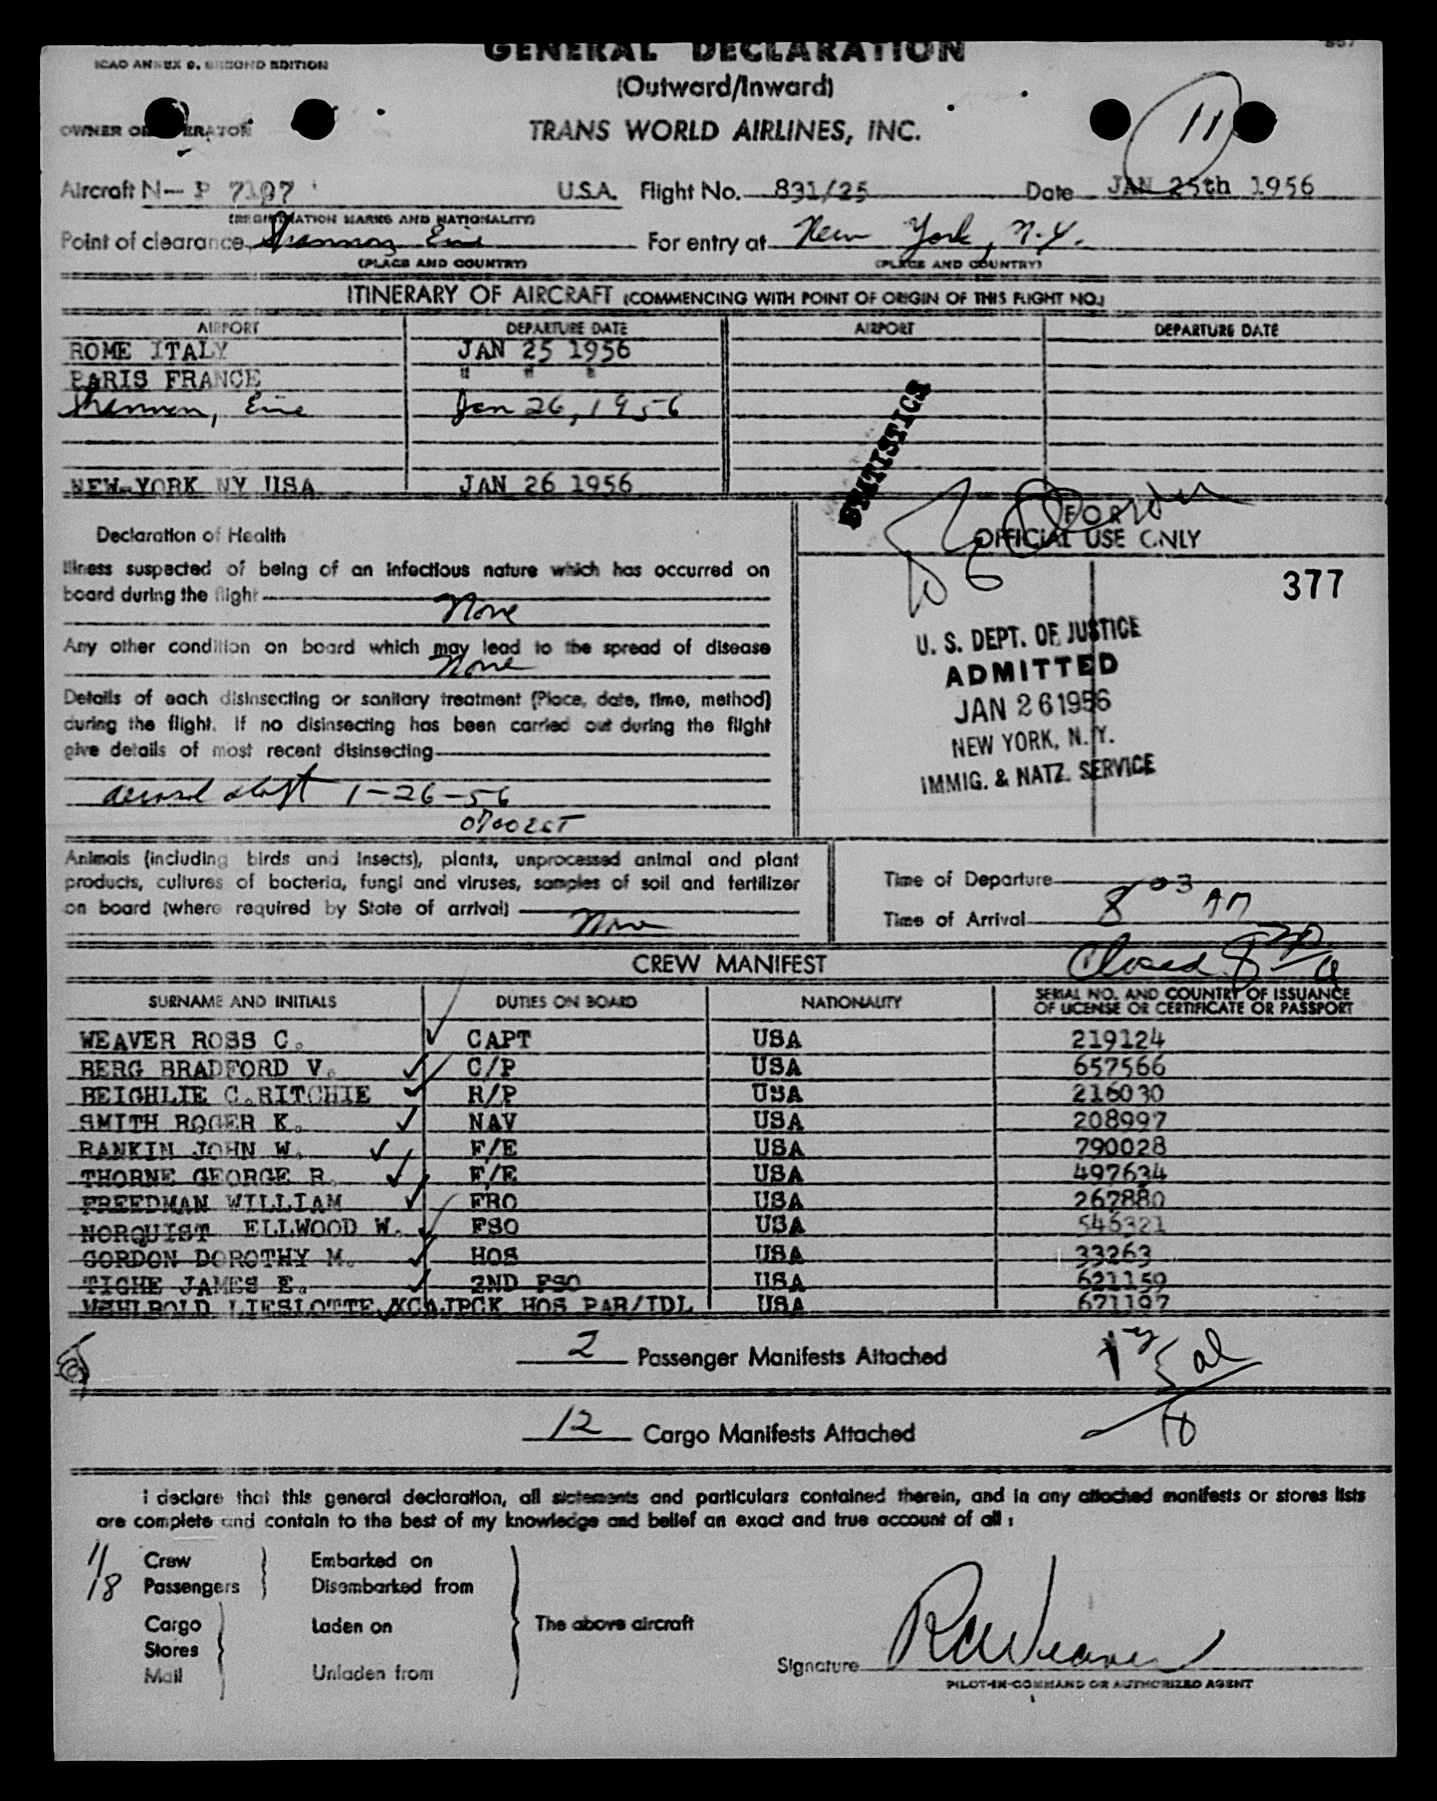 GENERAL DECLARATION
ICAO ANNEX 9. SECOND EDITION
(Outward/Inward)
11
OWNER OR OPERATOR
TRANS WORLD AIRLINES, INC.
Aircraft N— P 7107 U.S.A. Flight No. 831/25 Date JAN 25th 1956
(REGISTRATION MARKS AND NATIONALITY)
Point of clearance Shannon Eire For entry at New York, N.Y.
(PLACE AND COUNTRY) (PLACE AND COUNTRY)
ITINERARY OF AIRCRAFT (COMMENCING WITH POINT OF ORIGIN OF THIS FLIGHT NO.)
AIRPORT DEPARTURE DATE AIRPORT DEPARTURE DATE
ROME ITALY JAN 25 1956
PARIS FRANCE " " "
Shannon, Eire Jan 26, 1956
STATISTICS
NEW YORK NY USA JAN 26 1956
FOR
OFFICIAL USE ONLY
Declaration of Health
Illness suspected of being of an infectious nature which has occurred on
board during the flight
None
377
Any other condition on board which may lead to the spread of disease
None
U. S. DEPT. OF JUSTICE
ADMITTED
JAN 26 1956
NEW YORK, N.Y.
IMMIG. & NATZ. SERVICE
Details of each disinsecting or sanitary treatment (Place, date, time, method)
during the flight. If no disinsecting has been carried out during the flight
give details of most recent disinsecting
aerosol 1-26-56
0700 EST
Animals (including birds and insects), plants, unprocessed animal and plant
products, cultures of bacteria, fungi and viruses, samples of soil and fertilizer
on board (where required by State of arrival)
None
Time of Departure
Time of Arrival 8 03 AM
Closed 8
CREW MANIFEST
SURNAME AND INITIALS DUTIES ON BOARD NATIONALITY SERIAL NO. AND COUNTRY OF ISSUANCE
OF LICENSE OR CERTIFICATE OR PASSPORT
WEAVER ROSS C. CAPT USA 219124
BERG BRADFORD V. C/P USA 657566
BEIGHLIE C.RITCHIE R/P USA 216030
SMITH ROGER K. NAV USA 208997
RANKIN JOHN W. F/E USA 790028
THORNE GEORGE R. F/E USA 497634
FREEDMAN WILLIAM FRO USA 267880
NORQUIST ELLWOOD W. FSO USA 546321
GORDON DOROTHY M. HOS USA 33263
TIGHE JAMES E. 2ND FSO USA 621159
LIESLOTTE HOS PAR/IDL USA 671197
2 Passenger Manifests Attached
12 Cargo Manifests Attached
I declare that this general declaration, all statements and particulars contained therein, and in any attached manifests or stores lists
are complete and contain to the best of my knowledge and belief an exact and true account of all :
11 Crew Embarked on
18 Passengers Disembarked from
Cargo Laden on The above aircraft
Stores
Mail Unladen from
Signature RCWeaver
PILOT-IN-COMMAND OR AUTHORIZED AGENT